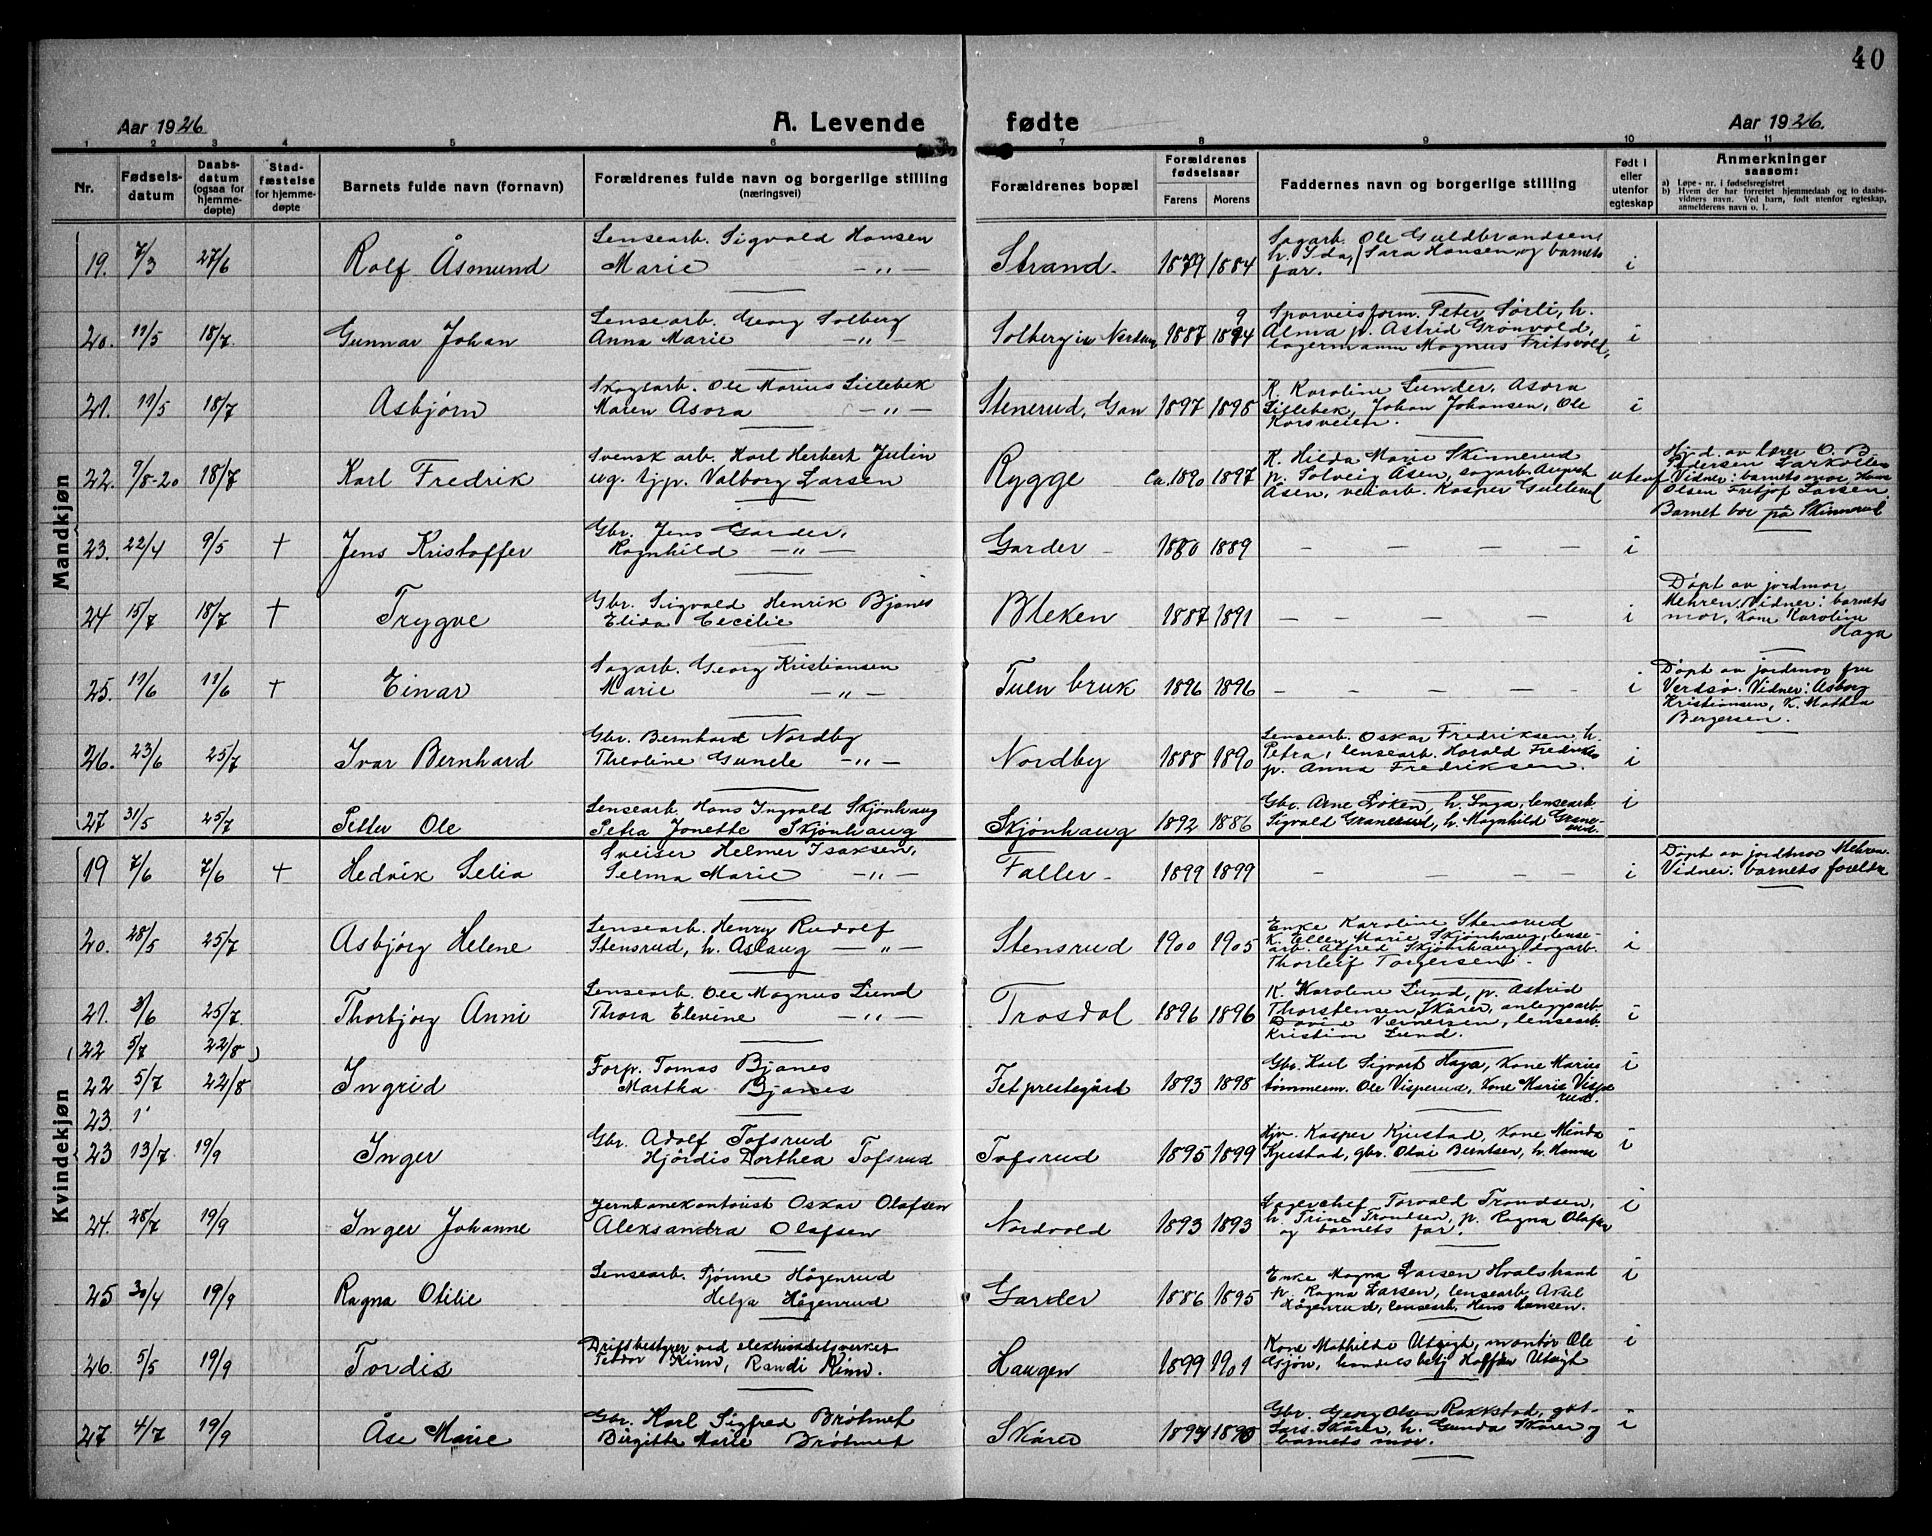 40
Aar 1926
A. Levende fødte
Aar 1926.
1 2 3 4 5 6 7 8 9 10 11
Nr.
Fødsels-
datum
Daabs-
datum
(ogsaa for
hjemme-
døpte)
Stad-
fæstelse
for hjemme-
døpte
Barnets fulde navn (fornavn)
Forældrenes fulde navn og borgerlige stilling
(næringsvei)
Forældrenes bopæl
Forældrenes
fødselsaar
Farens Morens
Faddernes navn og borgerlige stilling
Født i
eller
utenfor
egteskap
Anmerkninger
saasom:
a) Løpe-nr. i fødselsregistret
b) Hvem der har forrettet hjemmedaab og to daabs-
vidners navn. Ved barn, født utenfor egteskap,
anmelderens navn o. l.
Mandkjøn
19. 7/3 27/6 Rolf Åsmund
Lensearb. Sigvald Hansen
Marie —"—
Strand. 1879 1884
Sagarb. Ole Guldbrandsen
h. Ida, Sara Hansen, og barnets
far.
i
20. 11/5 18/7 Gunnar Johan
Lensearb. Georg Solberg
Anna Marie —"—
Solberg i Nerdrum 1887 1894
Sporveisform. Peter Sørli, h.
Alma, p. Astrid Grønvold,
lagermann Magnus Fritsvold,
i
21. 11/5 18/7 Asbjørn
Skogsarb. Ole Marius Lillebek
Maren Asora —"—
Stenerud, Gan 1897 1898
K. Karoline Lunder, Asora
Lillebek, Johan Johansen, Ole
Korsveien.
i
22. 9/8-20 18/7 Karl Fredrik
Svensk arb. Karl Herbert Julin
ug. tjp. Valborg Larsen
Rygge Ca. 1890 1897
K. Hilda Marie Skinnerud
p. Solveig Åsen, sagarb. August
Åsen, veiarb. Kasper Gulterud
utenf
Hj. d. av lærer O. B.
Pedersen Larkollen
Vidner: barnets mor, Hans
Olsen Fritjof Larsen
Barnet bor på Skinnerud
23. 22/4 9/5 + Jens Kristoffer
Gbr. Jens Garder,
Ragnhild —"—
Garder 1880 1889 — — — — i
24 15/7 18/7 + Trygve
Gbr. Sigvald Henrik Bjanes
Elida Cecilie
Bleken 1887 1891 — — — — i
Døpt av jordmor
Mehren. Vidner: barnets
mor, Kone Karoline
Haga
25. 11/6 11/6 + Einar
Sagarb. Georg Kristiansen
Marie —"—
Tuen bruk 1896 1896 — — — — i
Døpt av jordmor fru
Verdsø. Vidner: Asborg
Kristiansen, K. Mathea
Bergersen.
26. 23/6 25/7 Ivar Bernhard
Gbr. Bernhard Nordby
Theoline Gunele —"—
Nordby 1888 1890
Lensearb. Oskar Fredriksen, h.
Petra, lensearb. Harald Fredriks
p. Anna Fredriksen.
i
27 31/5 25/7 Petter Ole
Lensearb. Hans Ingvald Skjønhaug
Petra Jonette Skjønhaug
Skjønhaug 1892 1886
Gbr. Arne Løken, h. Inga, lensearb.
Sigvald Granerud, h. Magnhild Grane-
rud.
i
Kvindekjøn
19 7/6 7/6 + Hedvik Selia
Sveiser Helmer Isaksen,
Selma Marie —"—
Faller 1899 1899 — — — — i
Døpt av jordmor Mehren.
Vidner: barnets foreldre
20. 28/5 25/7 Asbjørg Helene
Lensearb. Henry Rudolf
Stensrud, h. Aslaug —"—
Stensrud 1900 1905
Enke Karoline Stensrud
K. Elley Marie Skjønhaug, lense-
arb. Alfred Skjønhaug, sogarb.
Thorleif Torgersen.
i
21. 3/6 25/7. Thorbjørg Anni
Lensearb. Ole Magnus Lund
Thora Elevine —"—
Trosdal 1896 1896
K. Karoline Lund, p. Astrid
Thorstensen, Skårer, anleggsarb.
David Vernersen, lensearb.
Kristian Lund.
i
(22 5/7 22/8)
22 5/7 22/8 Ingrid
Forp. Tomas Bjanes
Martha Bjanes
Fet prestegård 1893 1898
Gbr. Karl Sigvart Haga, Kone Marius
tømmerm. Ole Visperud, Kone Maris Vispe
rud.
i
23. 1'
23 13/7 19/9 Inger
Gbr. Adolf Tofsrud
Hjørdis Dorthea Tofsrud
Tofsrud 1895 1899
Hjv. Kasper Kjustad, Kone Minda
Kjustad, gbr. Olai Berntsen, h. Hanna
i
24. 28/7 19/9 Inger Johanne
Jernbanekontorist Oskar Olafsen
Aleksandra Olafsen
Nordvold 1893 1893
Lagerchef Torvald Trondsen,
h. Trine Trondsen, p. Ragna Olafsen
og barnets far.
i
25 30/4 19/9 Ragna Otilie
Lensearb. Tjønne Høgenrud
Helga Høgenrud
Garder 1886 1895
Enke Magna Larsen Hvalstrand
p. Ragna Larsen, lensearb. Aksel
Høgenrud, lensearb. Hans Hansen.
i
26. 5/5 19/9 Tordis
Driftbestyrer ved elektrisitetsverket
Teodor Kinn, Randi Kinn.
Haugen 1899 1901
Kone Mathilde Utsigt, montør Ole
Asjøn, handelsbetj Halfdan Utsigt
i
27 4/7 19/9 Åse Marie
Gbr. Karl Sigfred Brøtmet
Birgitte Marie Brøtmet
Skårer 1894 1890
Gbr. Georg Olsen Rakkstad, gbr.
Lars Skårer, h. Gunda Skårer og
barnets mor.
i